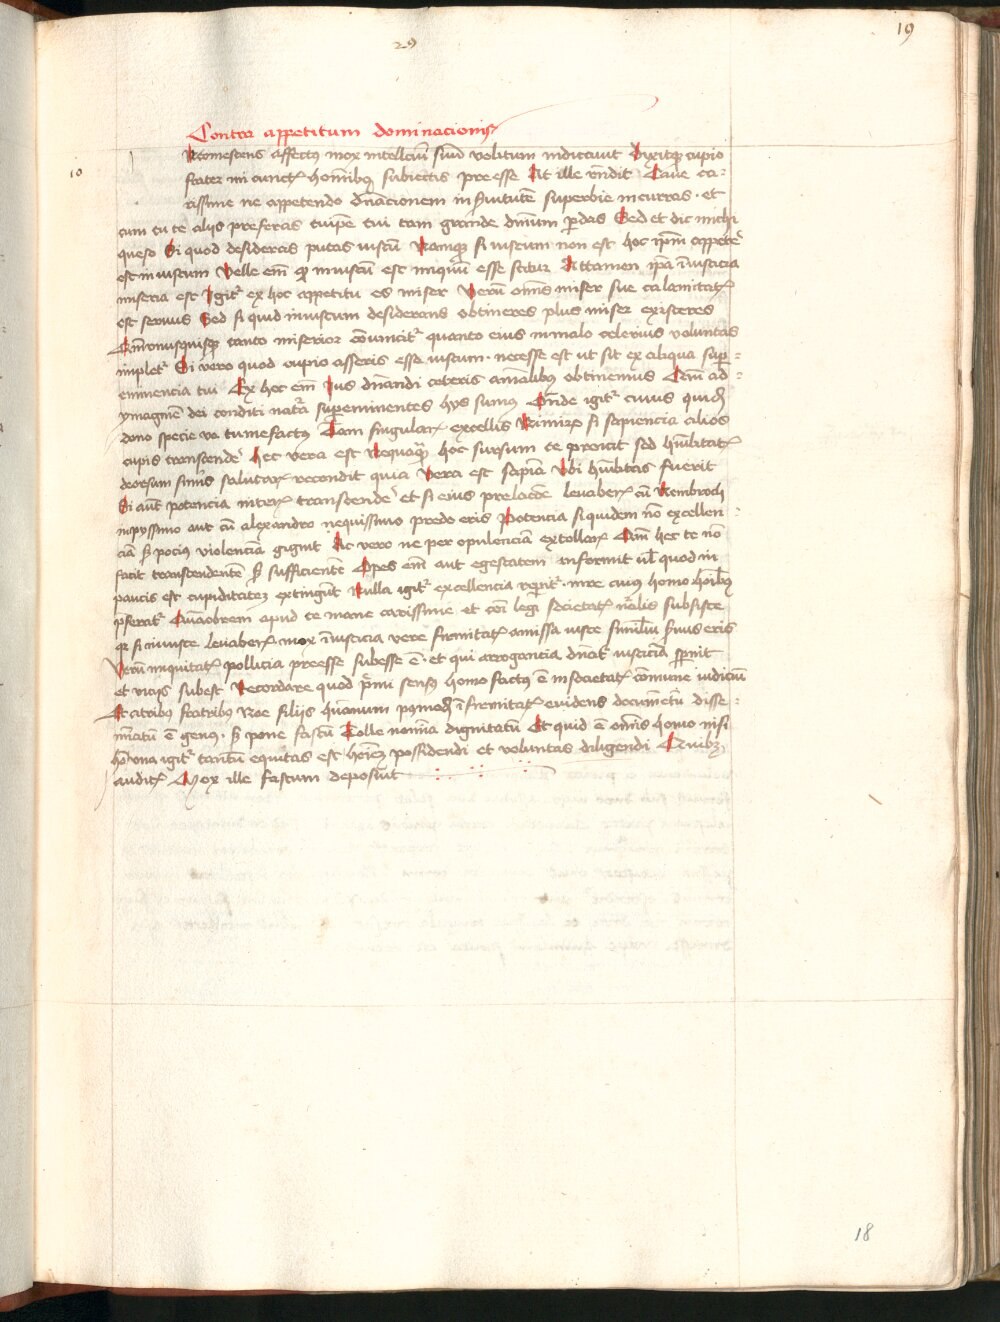 29
19
Contra appetitum dominacionis
10
affectus mox intellectui suum velitum indicauit Dixitque cupio
frater mi cunctis hominibus subiectis preesse At ille respondit Caue ca-
rissime ne appetendo dominacionem in seruitutem superbie incurras · et
cum tu te alijs preferas turpe tui tam grande dominium perdas Sed et dic michi
queso Si quod desideras putas iustum Namque si iustum non est hoc ipsum appetere
est iniustum Velle enim quod iniustum est iniquum esse scitur Attamen ipsa iniusticia
miseria est Igitur ex hoc appetitu es miser Verum omnis miser sue calamitatis
est seruus Sed si quid iniustum desiderans obtineres plus miser existeres
tanto miserior conuincitur quanto eius in malo celerius voluntas
impletur Si vero quod cupio asseris esse iustum · necesse est ut sit ex aliqua super-
eminencia tui Ex hoc enim Ius dominandi ceteris animalibus obtinemus Cum ad
ymaginem dei conditi natura supereminentes hijs sumus Unde igitur cuius quidem
dono specie tumefactus Tam singulariter excellis Nimirum si sapiencia alios
cupis transcendere hec vera est Nequaquam hoc sursum te proicit sed humilitatis
deorsum sinus salutariter recondit quia Vera est sapiencia Vbi humilitas fuerit
Si autem potencia niteris transcendere et si eius prelacione leuaberis cum Nembroth
inpyssimo aut cum alexandro nequissimo predo eris Potencia siquidem non excellen-
ciam sed pocius violenciam gignit At vero ne per opulenciam extollaris Cum hec te non
facit transcendentem sed sufficientem Opes enim aut egestatem informit vel quod in
paucis est cupiditates extingunt Nulla igitur excellencia reperitur · iure cuius homo hominibus
preferatur Quamobrem apud te mane carissime et cum legi societatis naturalis subsiste
quia si iniuste leuaberis mox iusticia vere firmitatis amissa iuste seruus eris
Verum iniquitatis pollucia preesse subesse est · et qui arrogantia dominatur iusticiam spernit
et vicijs subest Recordare quod primi sensus homo factus est in societatis commune iudicium
At a tribus fratribus Noe filijs humanum firmitatis euidens documentum disse-
minatum est genus · sed pone fastum Tolle nomina dignitatum Et quid est omnis homo nisi
homo vna igitur tantum equitas est hominem possidendi et voluntas diligendi Quibus
auditis Mox ille fastum deposuit
18